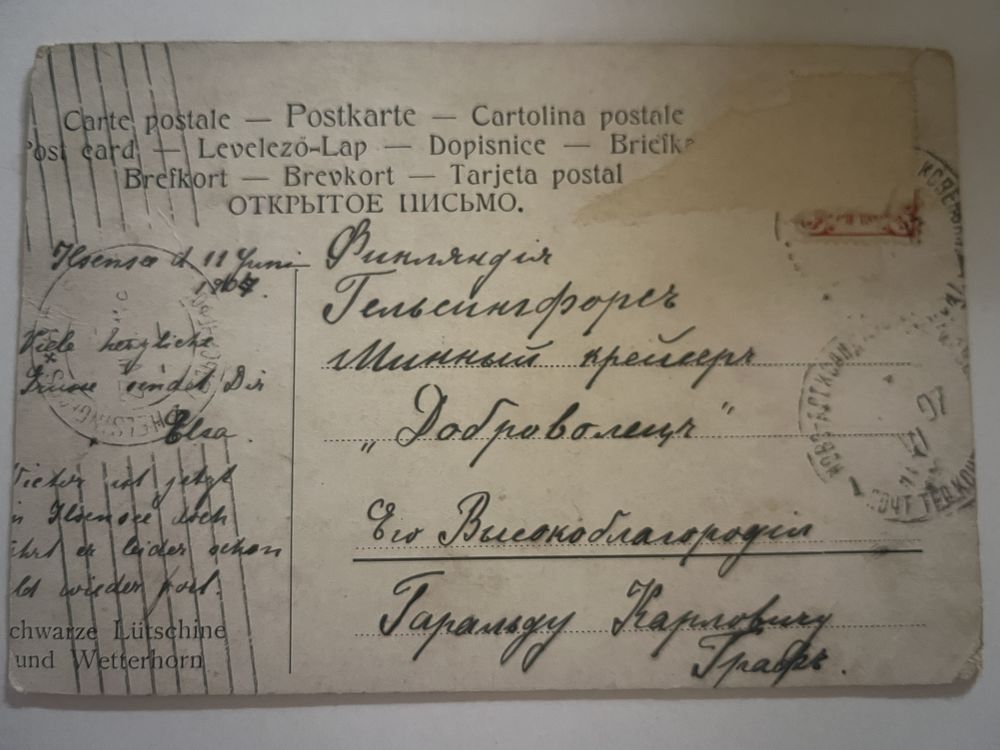 Carte postale — Postkarte — Cartolina postale
Post card — Levelezö-Lap — Dopisnice — Briefka
Brefkort — Brevkort — Tarjeta postal
ОТКРЫТОЕ ПИСЬМО.
Ilsensee d 11 Juni
1907.
Viele herzliche
Grüsse sendet Dir
Elsa.
ist jetzt
Ilsensee doch
er leider schon
ld wieder fort.
chwarze Lütschine
und Wetterhorn
Финляндія
Гельсингфорсъ
Минный крейсеръ
„Доброволецъ"
Его Высокоблагородію
Гаральду Карловичу
Графъ.
HELSINGFORS
07
ПОЧТ ТЕЛ КОНТ